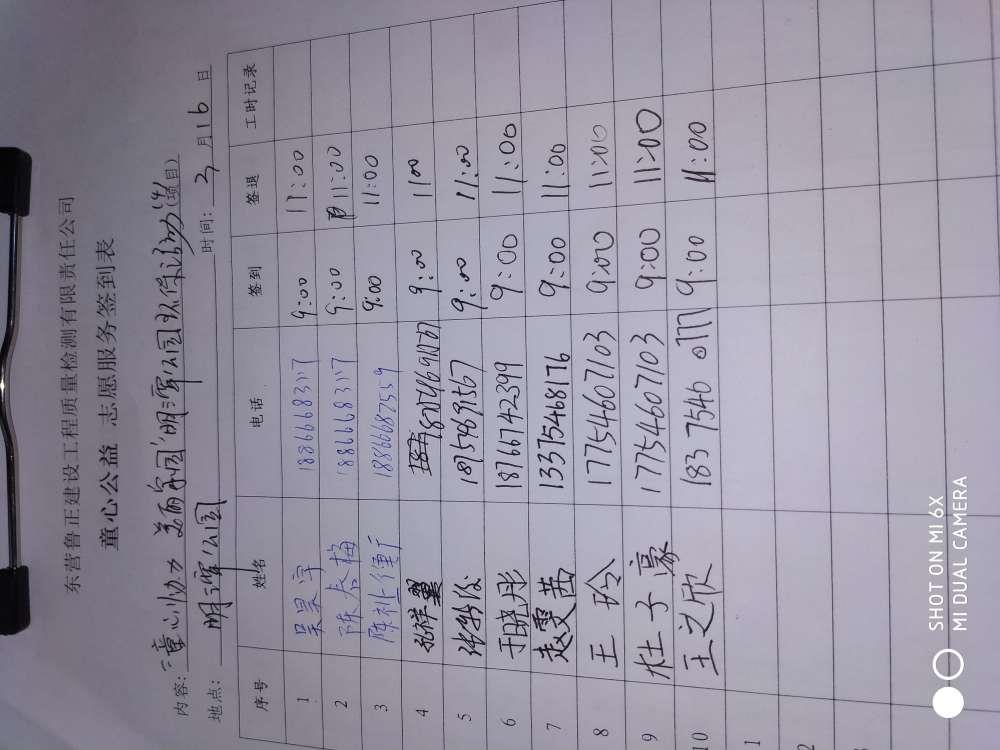 东营鲁正建设工程质量检测有限责任公司
童心公益 志愿服务签到表
内容: "童心协力 美丽家园"明潭公园环保活动(项目)
地点: 明潭公园 时间: 3 月 16 日
序号 姓名 电话 签到 签退 工时记录
1 吴昊宇 18866683117 9:00 11:00
2 陈春梅 18866683117 9:00 11:00
3 18866687559 9:00 11:00
4 祥翼 9:00 11:00
5 18754691567 9:00 11:00
6 于晓彤 18767142399 9:00 11:00
7 赵雯茜 13375468176 9:00 11:00
8 王玲 17754607103 9:00 11:00
9 杜子豪 17754607103 9:00 11:00
10 王之欣 183 7546 0777 9:00 11:00
1
2
SHOT ON MI 6X
MI DUAL CAMERA